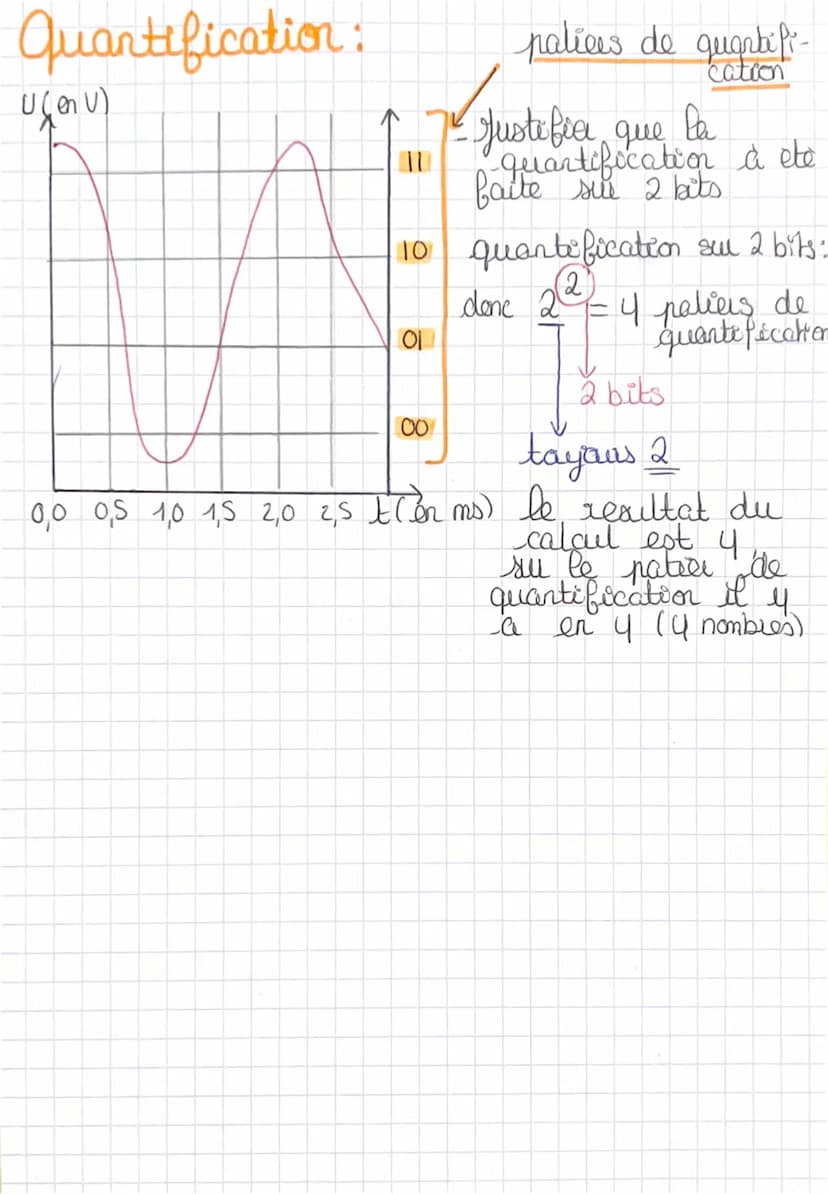 Quantification :
paliers de quantifi-
cation
U (en V)
- Justifier que la
quantification à eté
faite sur 2 bits
11
10
01
00
quantification sur 2 bits :
donc 2² = 4 paliers de
quantification
2 bits
toujours 2
0,0 0,5 1,0 1,5 2,0 2,5 t (en ms)
le resultat du
calcul est 4,
sur le palier de
quantification il y
a en 4 (4 nombres)